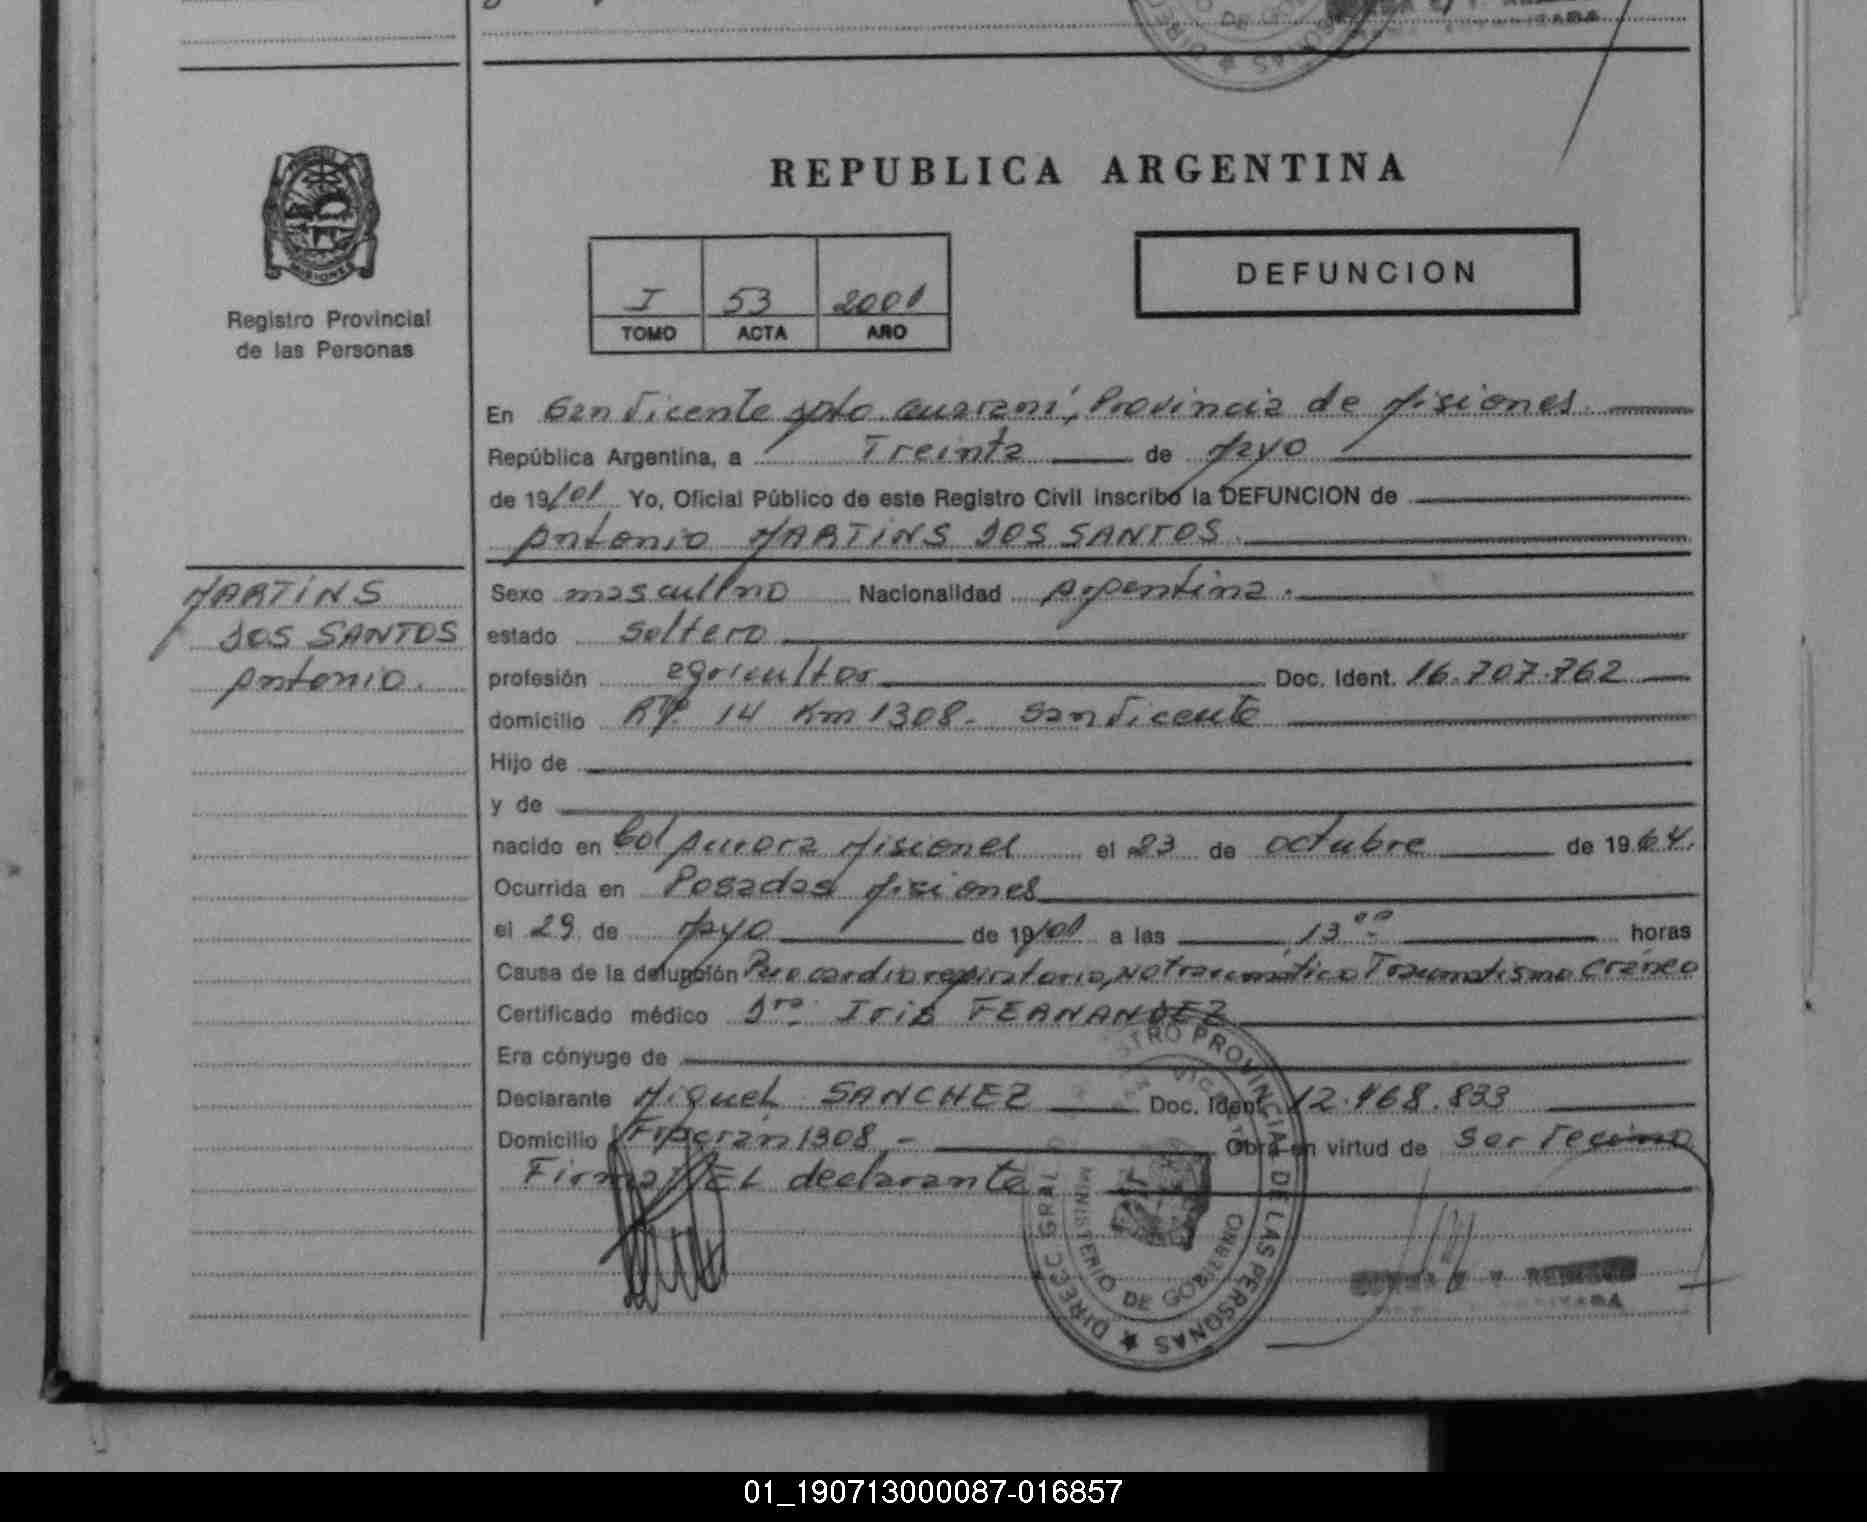 REPUBLICA ARGENTINA
MISIONES
Registro Provincial
de las Personas
I 53 2001
TOMO ACTA AÑO
DEFUNCION
En San Vicente Dpto. Guaraní, Provincia de Misiones.
República Argentina, a Treinta de Mayo
de 19/01 Yo, Oficial Público de este Registro Civil inscribo la DEFUNCION de
Antonio MARTINS DOS SANTOS.
MARTINS
DOS SANTOS
Antonio.
Sexo masculino Nacionalidad Argentina.
estado Soltero
profesión agricultor Doc. Ident. 16.707.762
domicilio 14 Km 1308 - San Vicente
Hijo de
y de
nacido en Col Aurora Misiones el 23 de octubre de 1964.
Ocurrida en Posadas Misiones
el 29 de Mayo de 19/01 a las 13 00 horas
Causa de la defunción Paro cardiorespiratorio, No traumático Traumatismo Craneo
Certificado médico Dra. Iris FERNANDEZ
Era cónyuge de
Declarante Miguel SANCHEZ Doc. Ident. 12.468.833
Domicilio 1308 - Obra en virtud de Ser Vecino
Firma EL declarante
DIREC GRAL REGISTRO PROVINCIAL DE LAS PERSONAS
MINISTERIO DE GOBIERNO
01_190713000087-016857